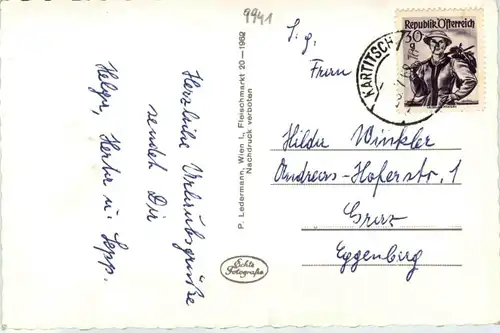 9941
Herzliche Urlaubsgrüße
sendet Dir
Helga, Herta u. Sepp.
P. Ledermann, Wien I., Fleischmarkt 20—1962
Nachdruck verboten
Echte
Fotografie
KARTITSCH
Republik Österreich
30
g
S. g.
Frau
Hilda Winkler
Andreas-Hoferstr. 1
Graz
Eggenberg